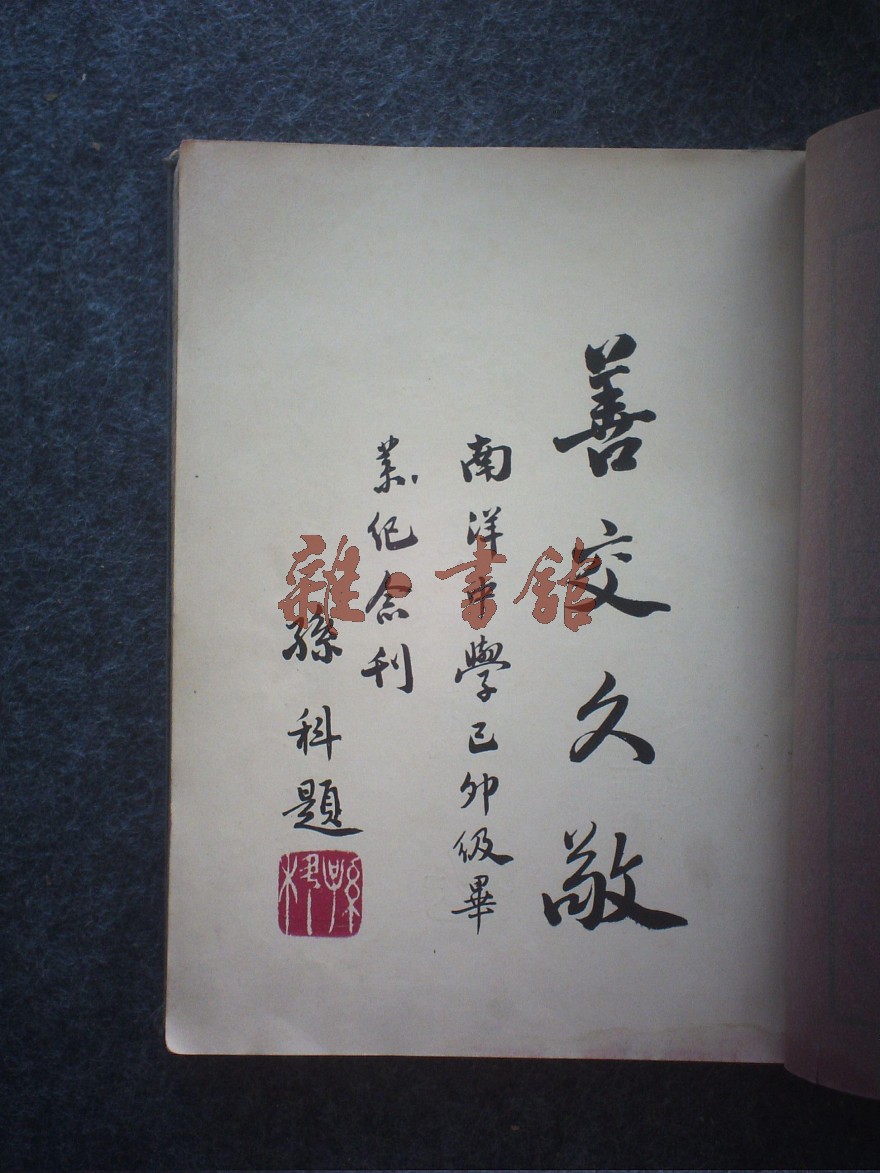 善交久敬
南洋中學己卯级畢
業纪念刋
孫科題
孫科
雜·書館